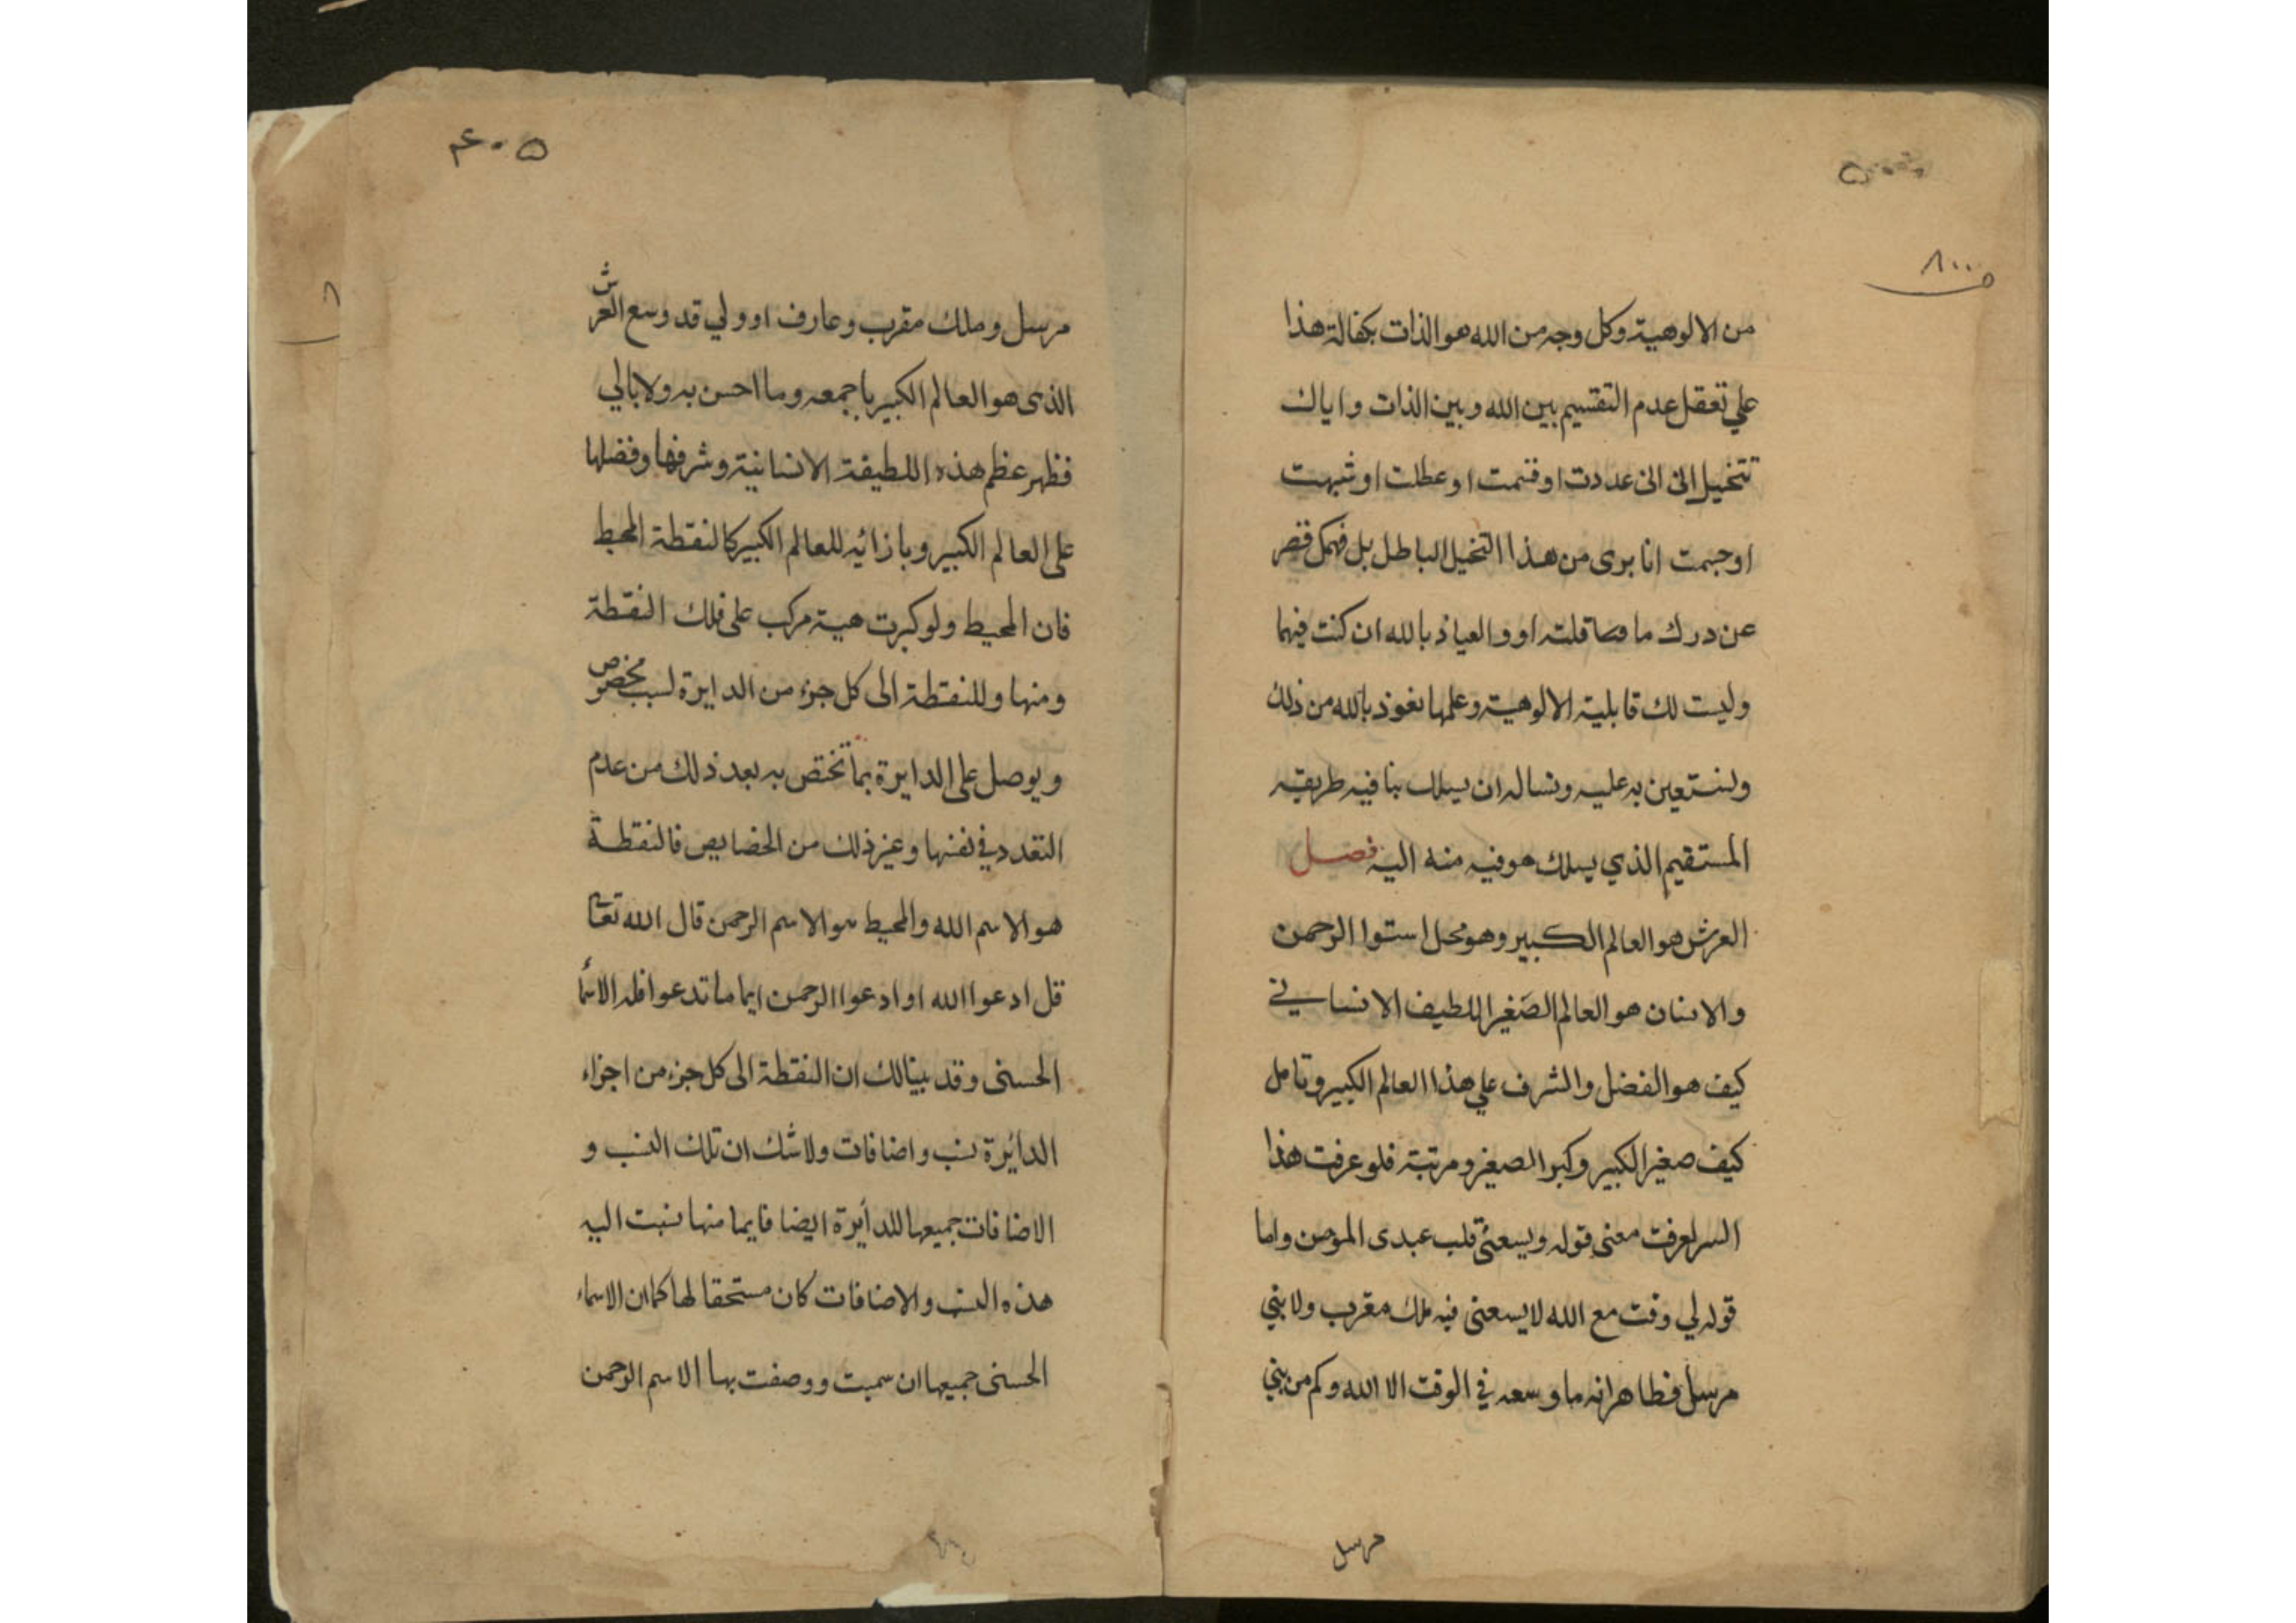 من الالوهية وكل وجه من الله هو الذات بكفالة هذا
علي تعقل عدم التقسيم بين الله وبين الذات واياك
تتخيل انى عددت او قسمت او عطلت او شبهت
او جسمت انا برى من هذا التخيل الباطل بل فهمك قصر
عن درك ما قلته او والعياذ بالله ان كنت فيهما
وليست لك قابلية الالوهية وعلمها نعوذ بالله من ذلك
ونستعين به عليه ونساله ان يسلك بنا فيه طريقه
المستقيم الذي يسلك هو فيه منه اليه فصل
العرش هو العالم الكبير وهو محل استوا الرحمن
والانسان هو العالم الصغير اللطيف الانساني
كيف هو الفضل والشرف علي هذا العالم الكبير وتامل
كيف صغير الكبير وكبر الصغير ومرتبة فلو عرفت هذا
السر لعرفت معنى قوله ويسعني قلب عبدى المومن واما
قوله لي وقت مع الله لا يسعنى فيه ملك مقرب ولا نبي
مرسل فظاهر انه ما وسعه في الوقت الا الله وكم من نبي
مرسل
مرسل وملك مقرب وعارف او ولي قد وسع العرش
الذى هو العالم الكبير باجمعه وما احسن به ولا بالي
فظهر عظم هذه اللطيفة الانسانية وشرفها وفضلها
على العالم الكبير وبازائه للعالم الكبير كالنقطة المحيط
فان المحيط ولو كبرت هية مركب على فلك النقطة
ومنها وللنقطة الى كل جزء من الدايرة لسبب مخصوص
ويوصل على الدايرة بما تختص به بعد ذلك من عدم
التعدد في نفسها وغير ذلك من الخصايص فالنقطة
هو الاسم الله والمحيط هو الاسم الرحمن قال الله تعا
قل ادعوا الله او ادعوا الرحمن ايما ما تدعوا فله الاسما
الحسنى وقد بينا لك ان النقطة الى كل جزء من اجزاء
الدائرة نسب واضافات ولا شك ان تلك النسب و
الاضافات جميعها للدائرة ايضا فايما منها نسبت اليه
هذه النسب والاضافات كان مستحقا لها كما ان الاسماء
الحسنى جميعها ان سميت ووصفت بها الاسم الرحمن